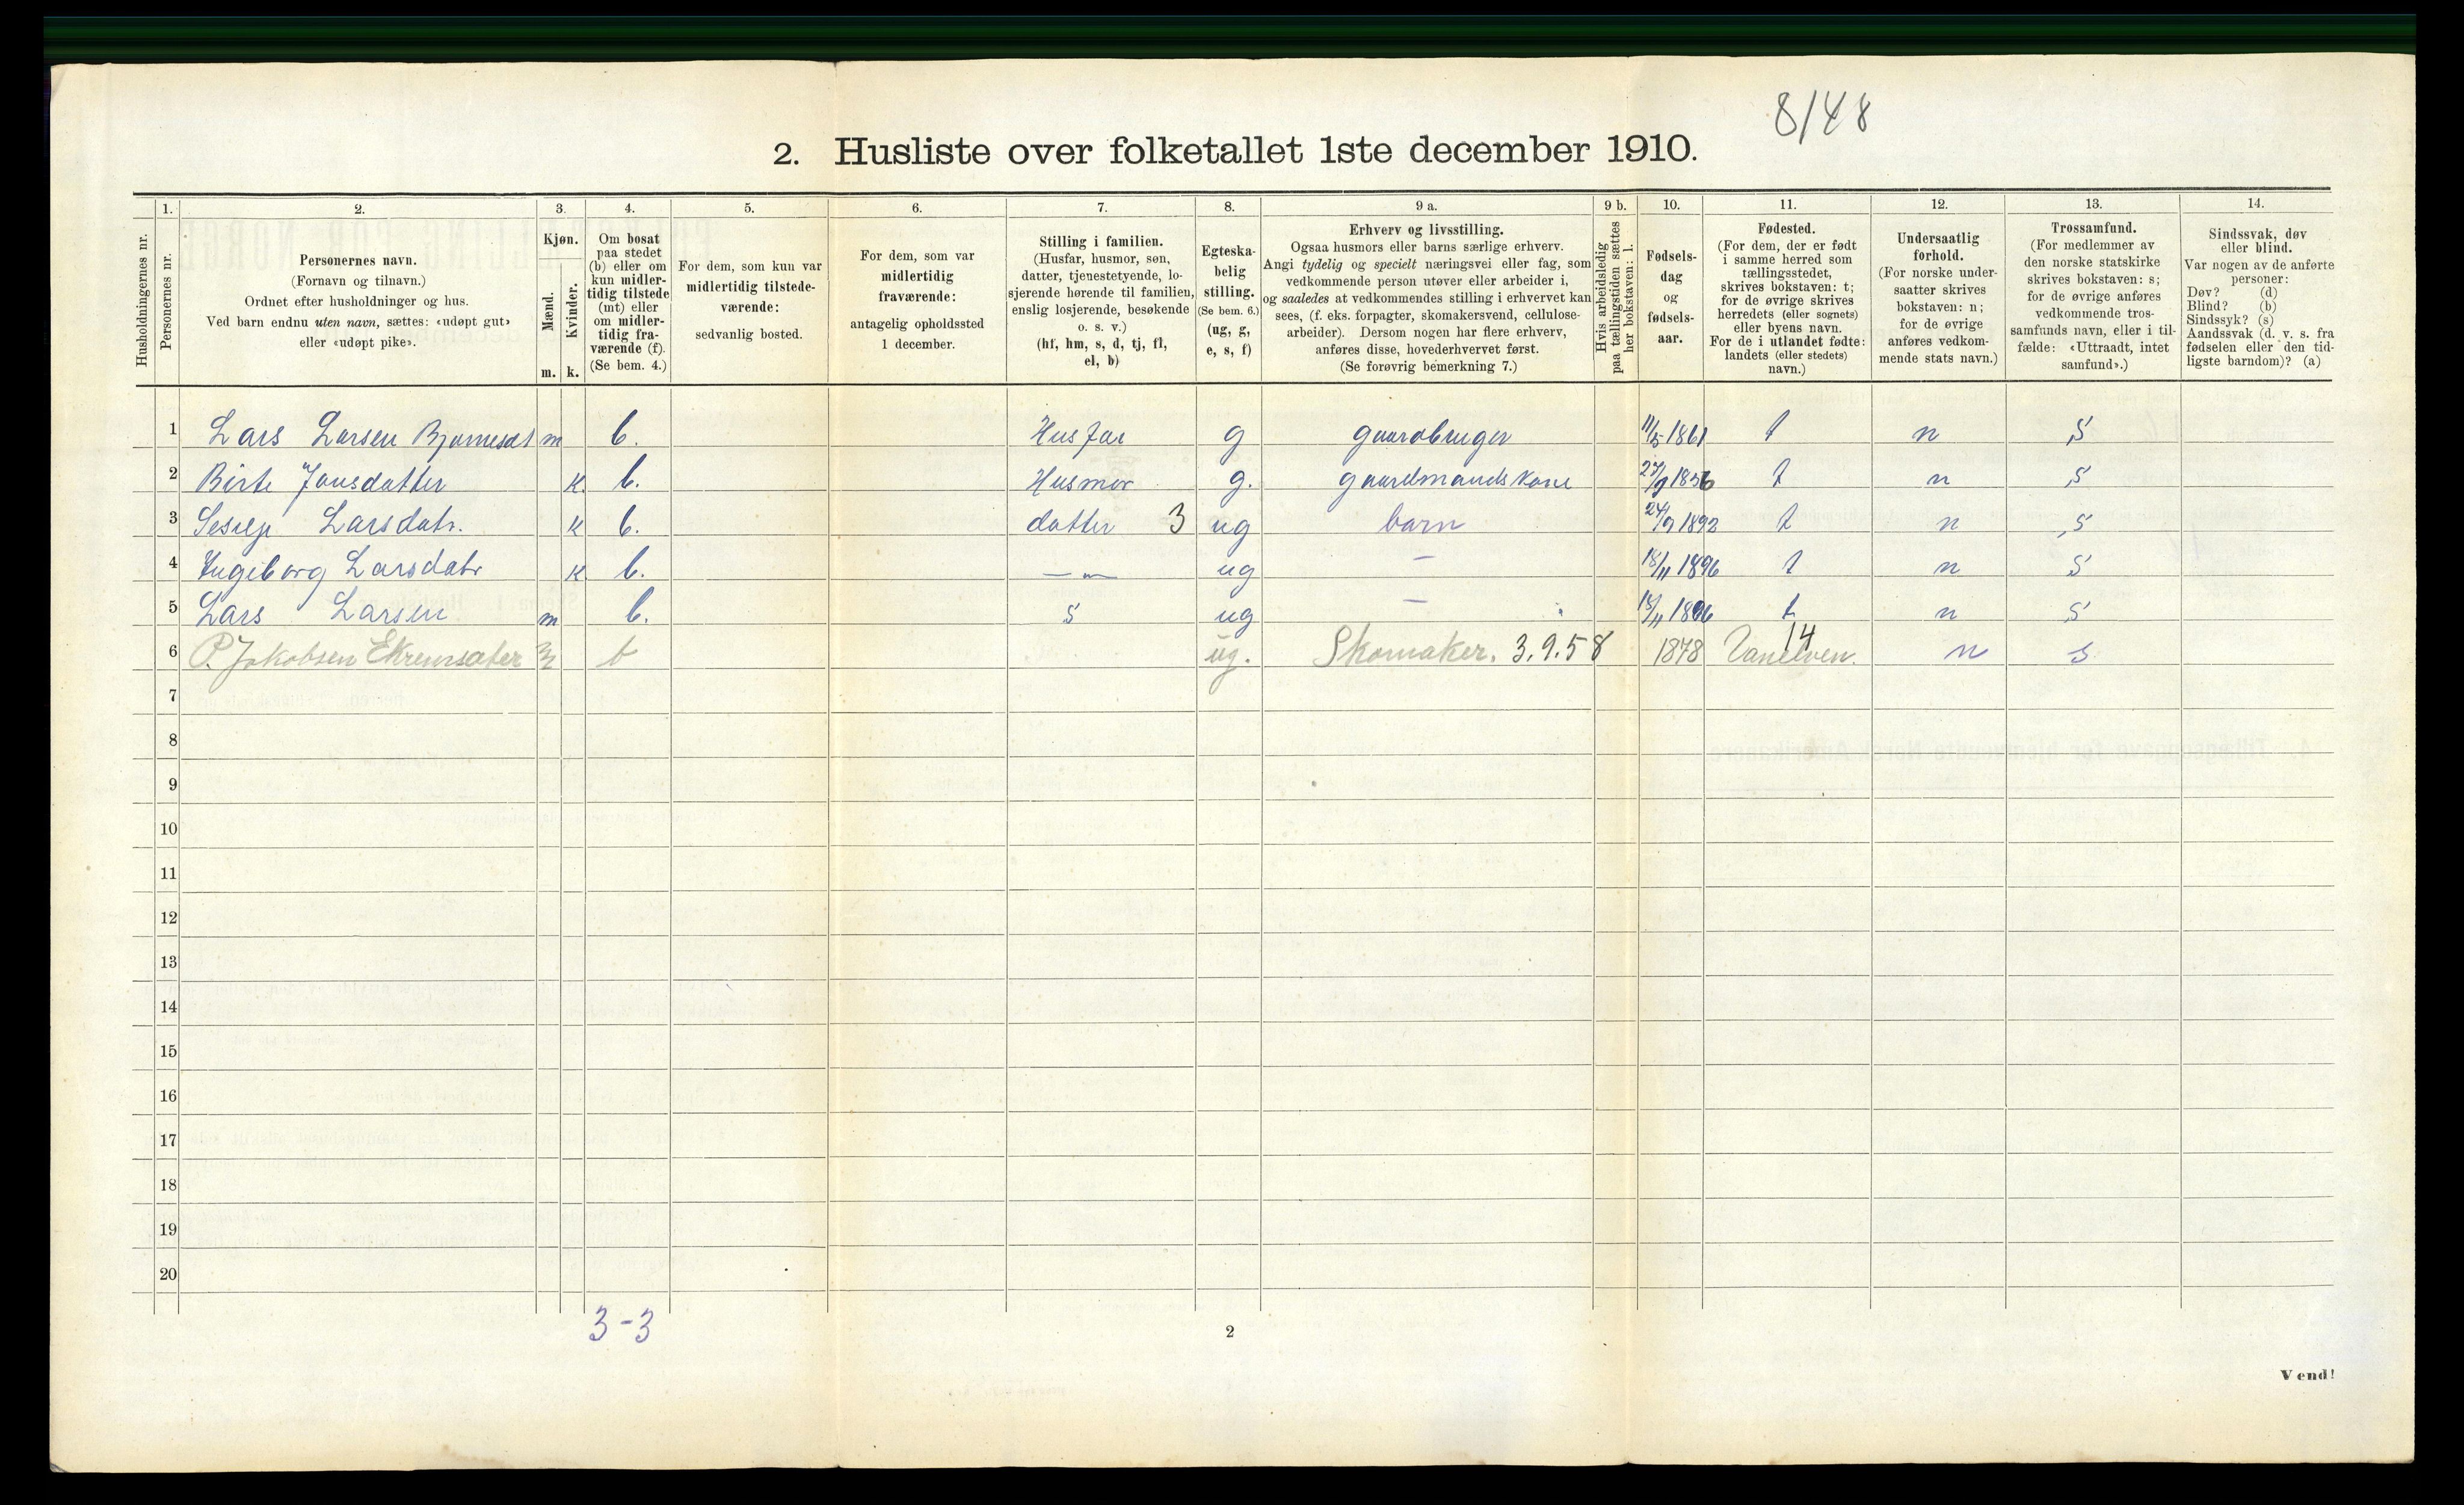 8/48
2. Husliste over folketallet 1ste december 1910.
Husholdningernes nr.
1.
Personernes nr.
2.
Personernes navn.
(Fornavn og tilnavn.)
Ordnet efter husholdninger og hus.
Ved barn endnu uten navn, sættes: «udøpt gut»
eller «udøpt pike».
3.
Kjøn.
Mænd.
Kvinder.
m. k.
4.
Om bosat
paa stedet
(b) eller om
kun midler-
tidig tilstede
(mt) eller
om midler-
tidig fra-
værende (f).
(Se bem. 4.)
5.
For dem, som kun var
midlertidig tilstede-
værende:
sedvanlig bosted.
6.
For dem, som var
midlertidig
fraværende:
antagelig opholdssted
1 december.
7.
Stilling i familien.
(Husfar, husmor, søn,
datter, tjenestetyende, lo-
sjerende hørende til familien,
enslig losjerende, besøkende
o. s. v.)
(hf, hm, s, d, tj, fl,
el, b)
8.
Egteska-
belig
stilling.
(Se bem. 6.)
(ug, g,
e, s, f)
9 a.
Erhverv og livsstilling.
Ogsaa husmors eller barns særlige erhverv.
Angi tydelig og specielt næringsvei eller fag, som
vedkommende person utøver eller arbeider i,
og saaledes at vedkommendes stilling i erhvervet kan
sees, (f. eks. forpagter, skomakersvend, cellulose-
arbeider). Dersom nogen har flere erhverv,
anføres disse, hovederhvervet først.
(Se forøvrig bemerkning 7.)
9 b.
Hvis arbeidsledig
paa tællingstiden sættes
her bokstaven: l.
10.
Fødsels-
dag
og
fødsels-
aar.
11.
Fødested.
(For dem, der er født
i samme herred som
tællingsstedet,
skrives bokstaven: t;
for de øvrige skrives
herredets (eller sognets)
eller byens navn.
For de i utlandet fødte:
landets (eller stedets)
navn.)
12.
Undersaatlig
forhold.
(For norske under-
saatter skrives
bokstaven: n;
for de øvrige
anføres vedkom-
mende stats navn.)
13.
Trossamfund.
(For medlemmer av
den norske statskirke
skrives bokstaven: s;
for de øvrige anføres
vedkommende tros-
samfunds navn, eller i til-
fælde: «Uttraadt, intet
samfund».)
14.
Sindssvak, døv
eller blind.
Var nogen av de anførte
personer:
Døv? (d)
Blind? (b)
Sindssyk? (s)
Aandssvak (d. v. s. fra
fødselen eller den tid-
ligste barndom)? (a)
1 Lars Larsen m b. Husfar g gaardbruger 11/5 1861 t n s
2 Birte Jonsdatter k. b. Husmor g. gaardmandskone 27/9 1856 t n s
3 Larsdatr. k b. datter 3 ug barn 24/9 1892 t n s
4 Ingeborg Larsdatr k b. —"— ug — 18/11 1896 t n s
5 Lars Larsen m b. s ug — 18/11 1896 t n s
6 P. Jakobsen Ekremsæter m b ug. Skomaker. 3.9.58 1878 Vanelven. 14 n s
7
8
9
10
11
12
13
14
15
16
17
18
19
20
3-3
2
Vend!